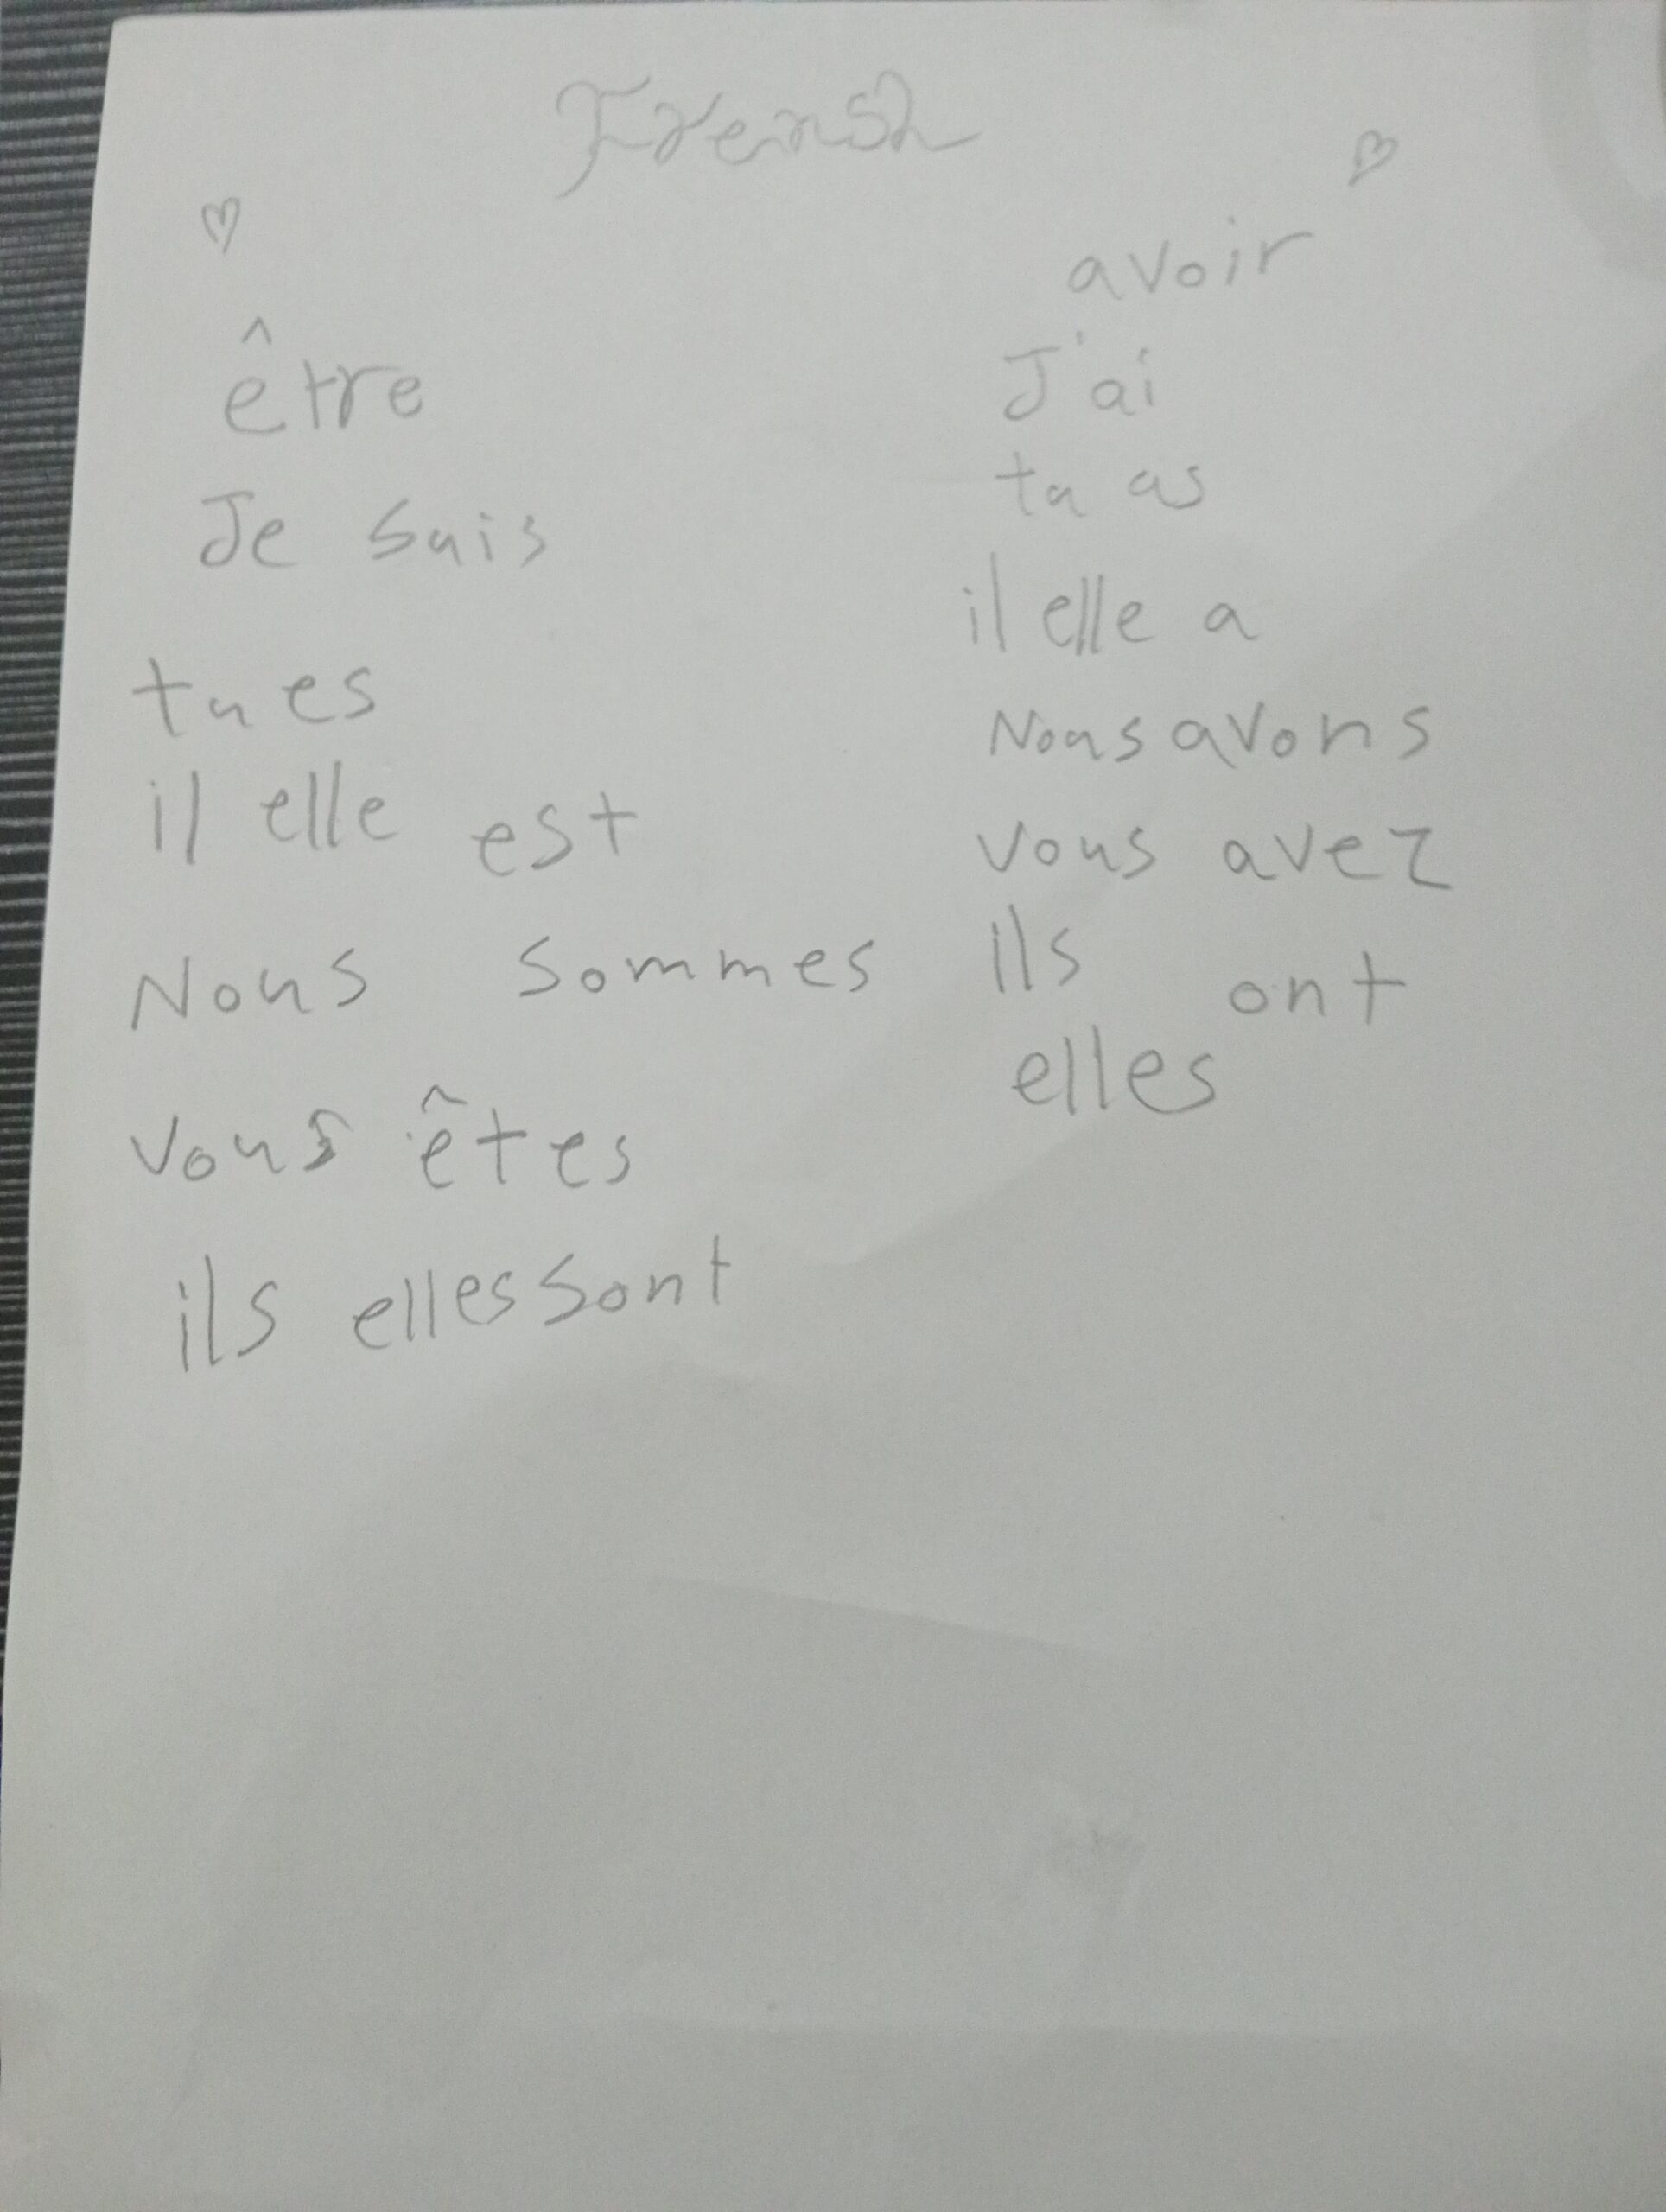 Frensh
être
Je suis
tu es
il elle est
Nous sommes
vous êtes
ils elles sont
avoir
J'ai
tu as
il elle a
Nous avons
vous avez
Ils ont
elles